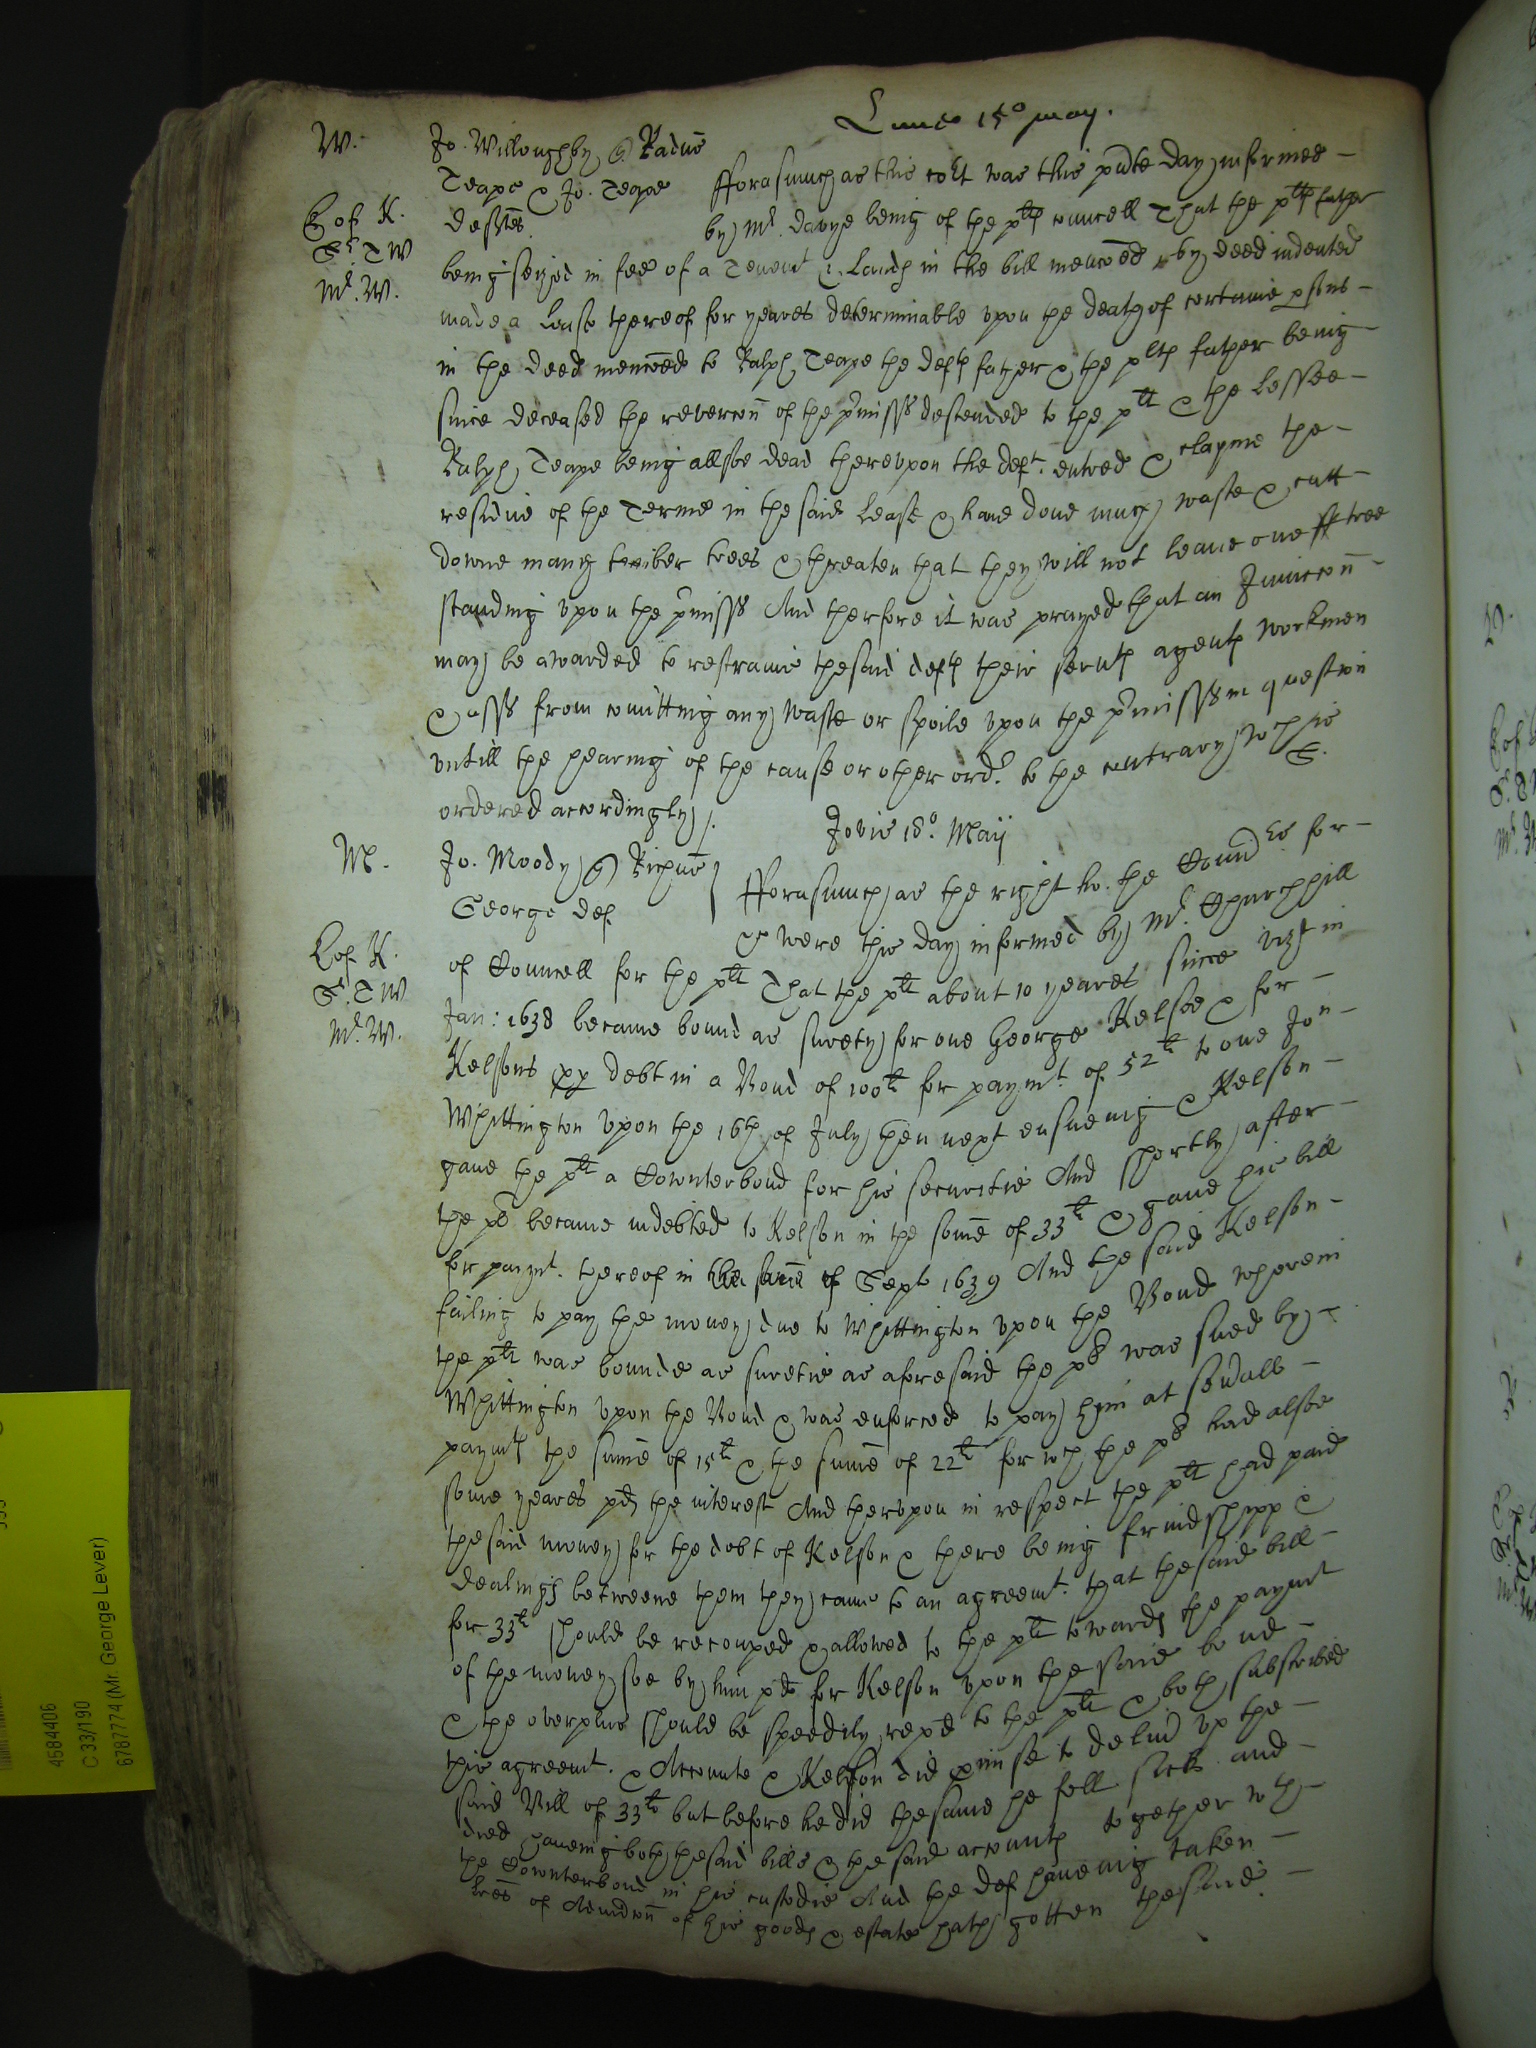 Lune 15o may.
W.
Jo. Willoughby Radus
Teape & Jo. Teape
deftes.
Eof K.
Sr T W
Mr. W.
fforasmuch as this cort was this pnte day informed
by Mr. Davye being of the plts councell That the plts father
being seized in fee of a Tenemt & Lands in the bill menconed by deed indented
made a Lease thereof for yeares determinable upon the death of certaine psons
in the deed menconed to Ralph Teape the defts father & the plts father being
since deceased the revercon of the pmisses descended to the plt & the Lessee
Ralph Teape being allsoe dead thereupon the deft. entred & clayme the
residue of the Terme in the said Lease & have done much waste & cutt
downe many timber trees & threaten that they will not leave one tree
standing upon the pmisses And therfore it was prayed that an Iniunccon
may be awarded to restraine the said defts their servts agents workmen
& asss from comitting any waste or spoile upon the pmisses in question
untill the hearing of the cause or other ordr. to the contrary wch is
ordered accordingly /.
Jovis 18o. Maij
M.
Jo. Moody Richus
George def
Eof K.
Sr. T W
Mr. W.
fforasmuch as the right ho. the Comrs for
& were this day informed by Mr. Churchhill
of Councell for the plt That the plt about 10 yeares since vizt in
Jan: 1638 became bound as surety for one George Kelson & for
Kelsons pp debt in a Bond of 100li for paymt. of 52li to one Jon
Whittington upon the 16th of July then next ensueing & Kelson
gave the plt a Counterbond for his securitie And shortly after
the pl became indebted to Kelson in the some of 33li & gave his bill
for paymt. thereof in Sept 1639 And the said Kelson
failing to pay the money due to Whittington upon the Bond wherein
the plt was bounde as suretie as aforesaid the pl was sued by
Whittington upon the Bond & was enforced to pay him at sevall
paymts the sume of 15li & the sume of 22li for wch the pl had alsoe
some yeares pd the interest And therupon in respect the plt had paid
the said money for the debt of Kelson & there being frindshipp &
dealings betweene them they came to an agreemt. that the said bill
for 33li should be recouped & allowed to the plt towards the paymt
of the money soe by him pd for Kelson upon the said bond
& the overplus should be speedily repd to the plt & both subscribed
this agreemt. & Accounte & Kelson did pmise to deliver up the
said Bill of 33li but before he did the same he fell sick and
died haveing both the said bills & the said accounts together wth
the Counterbond in his custodie And the def haveing taken
lres of Admcon of his goods & estate hath gotten the said
4584406
C 33/190
6787774 (Mr. George Lever)